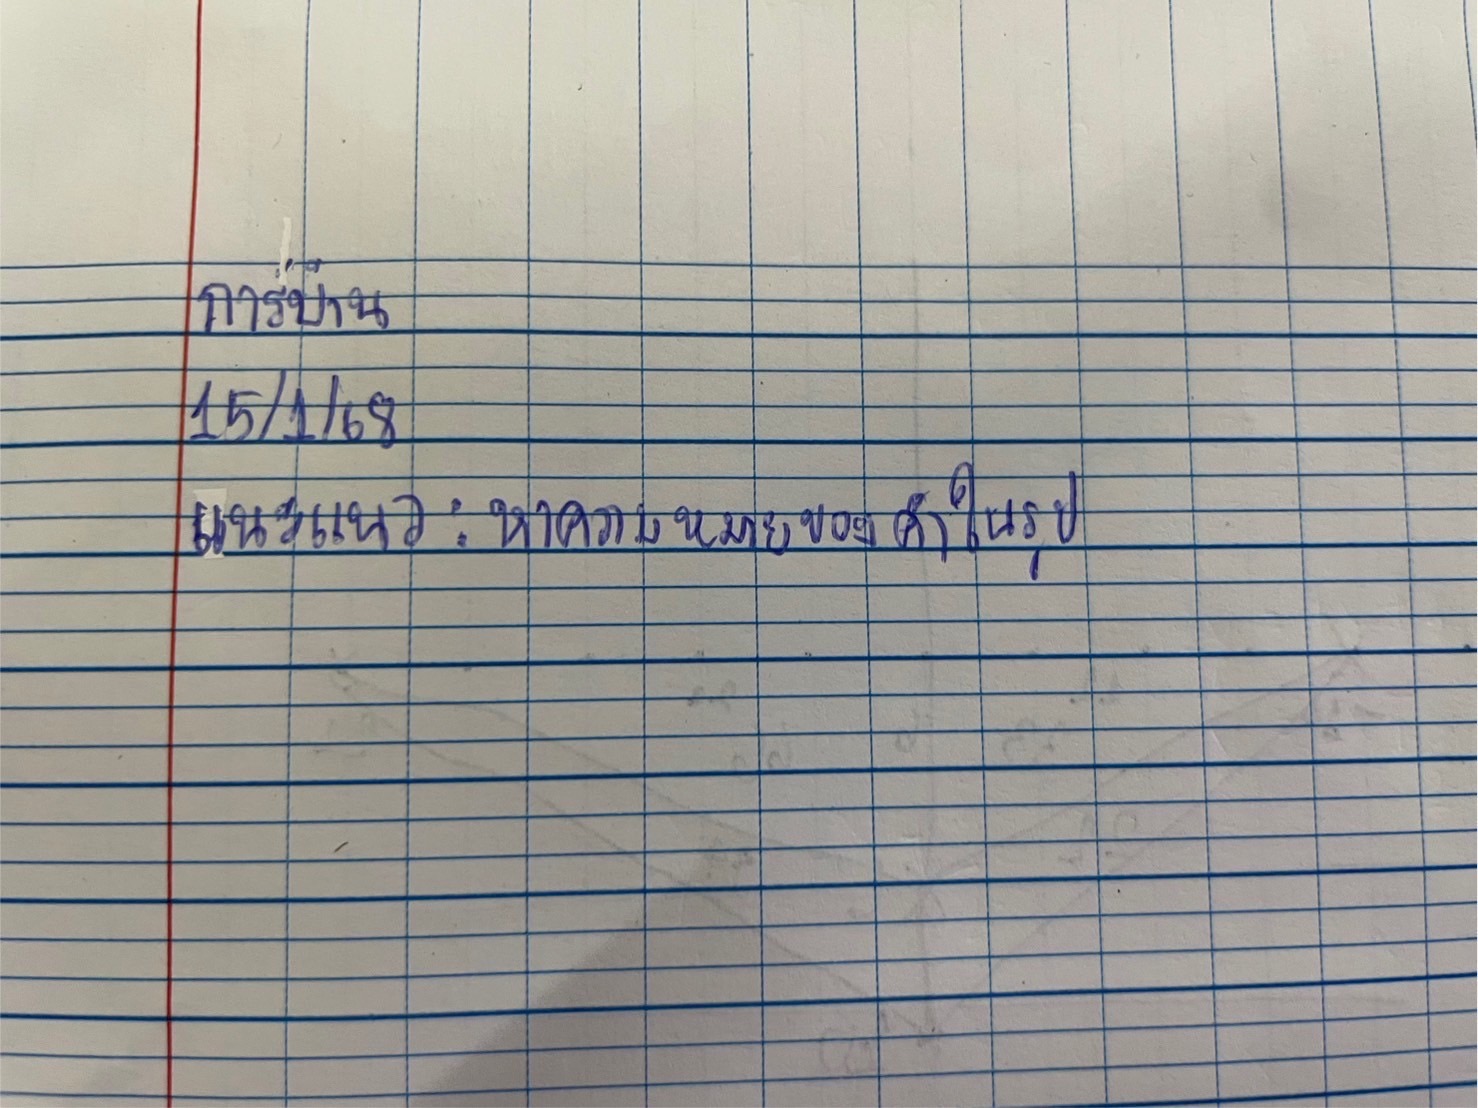 การบ้าน
15/1/68
แนะแนว : หาความหมายของคำในรูป